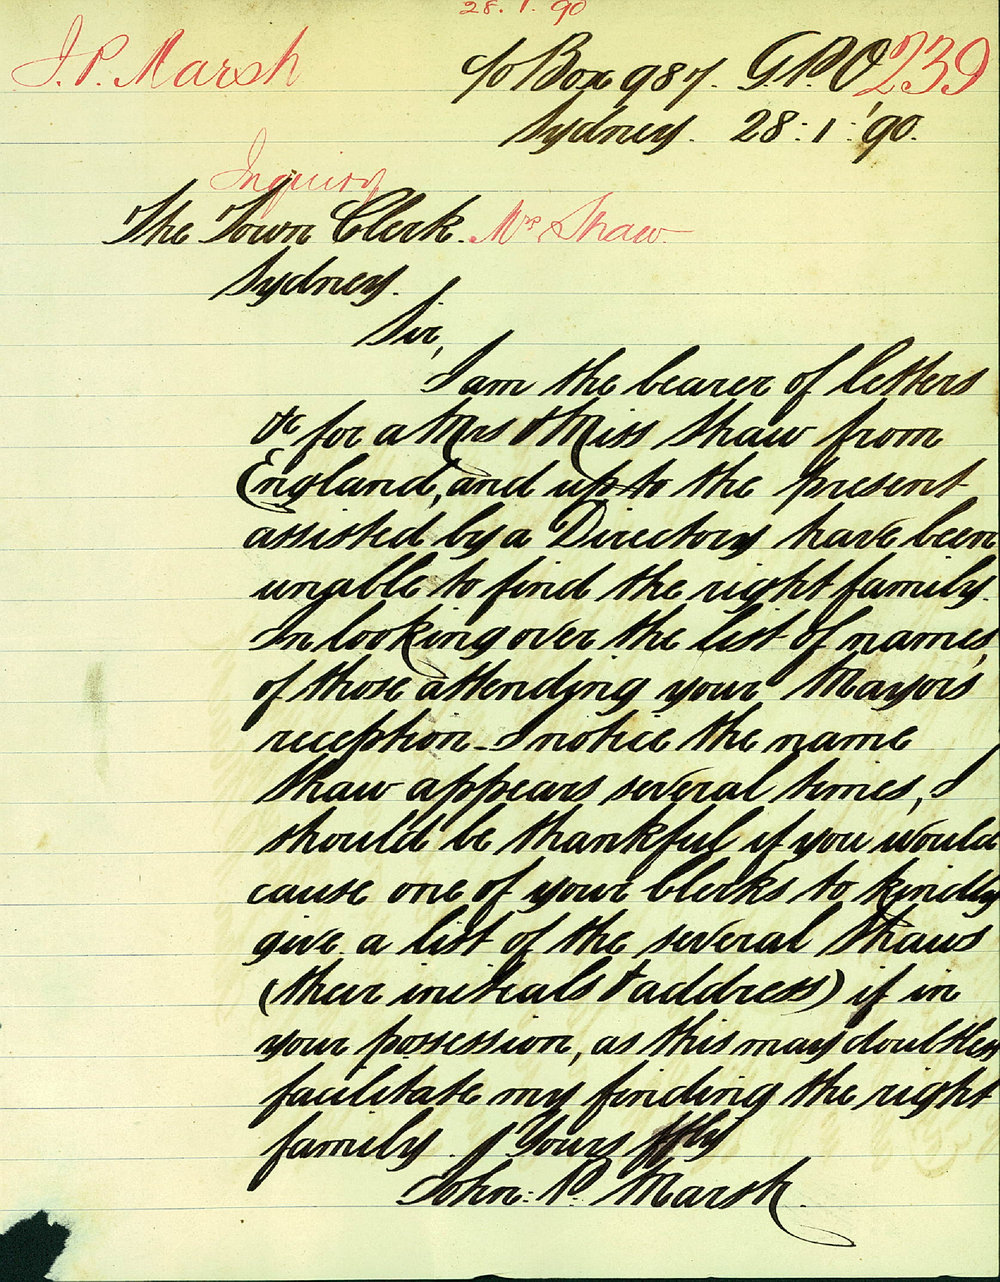 28.1.90
J.P. Marsh
239
c/o Box 987. G.P.O
Sydney. 28:1:'90.
Inquiry
The Town Clerk. Mrs Shaw.
Sydney.
Sir,
I am the bearer of letters
&c for a Mrs & Miss Shaw from
England, and up to the present
assisted by a Directory have been
unable to find the right family.
In looking over the list of names,
of those attending your Mayor's
reception - I notice the name
Shaw appears several times, I
should be thankful if you would
cause one of your clerks to kindly
give a list of the several Shaws
(their initials & address) if in
your possession, as this may doubtless
facilitate my finding the right
family. Yours ffly
John. P. Marsh.